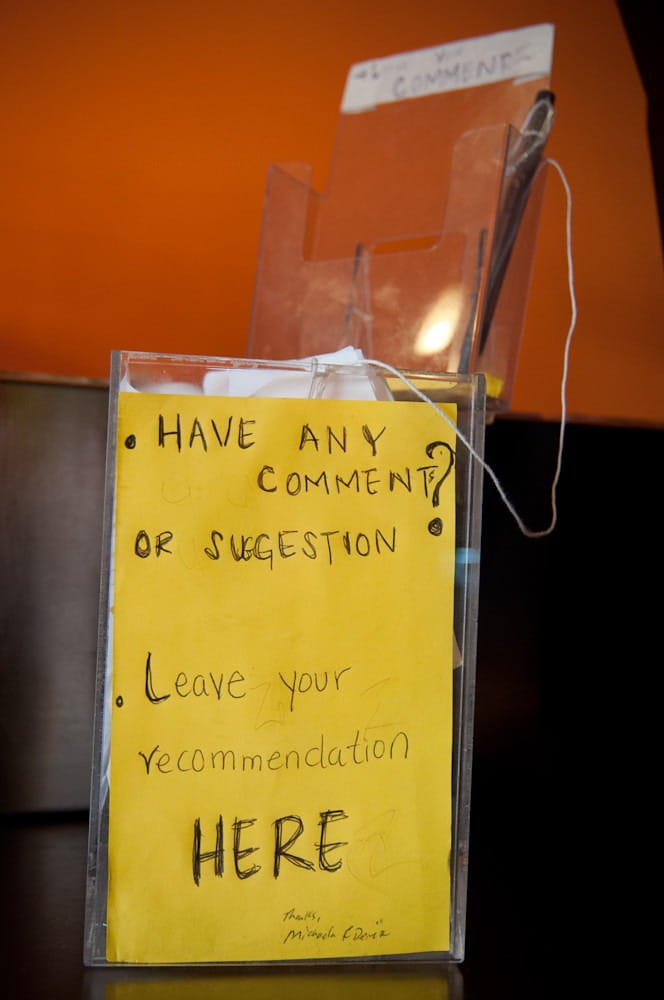 COMMENT
• HAVE ANY
COMMENTS?
OR SUGGESTION
• Leave your
recommendation
HERE
Thanks,
Michaela